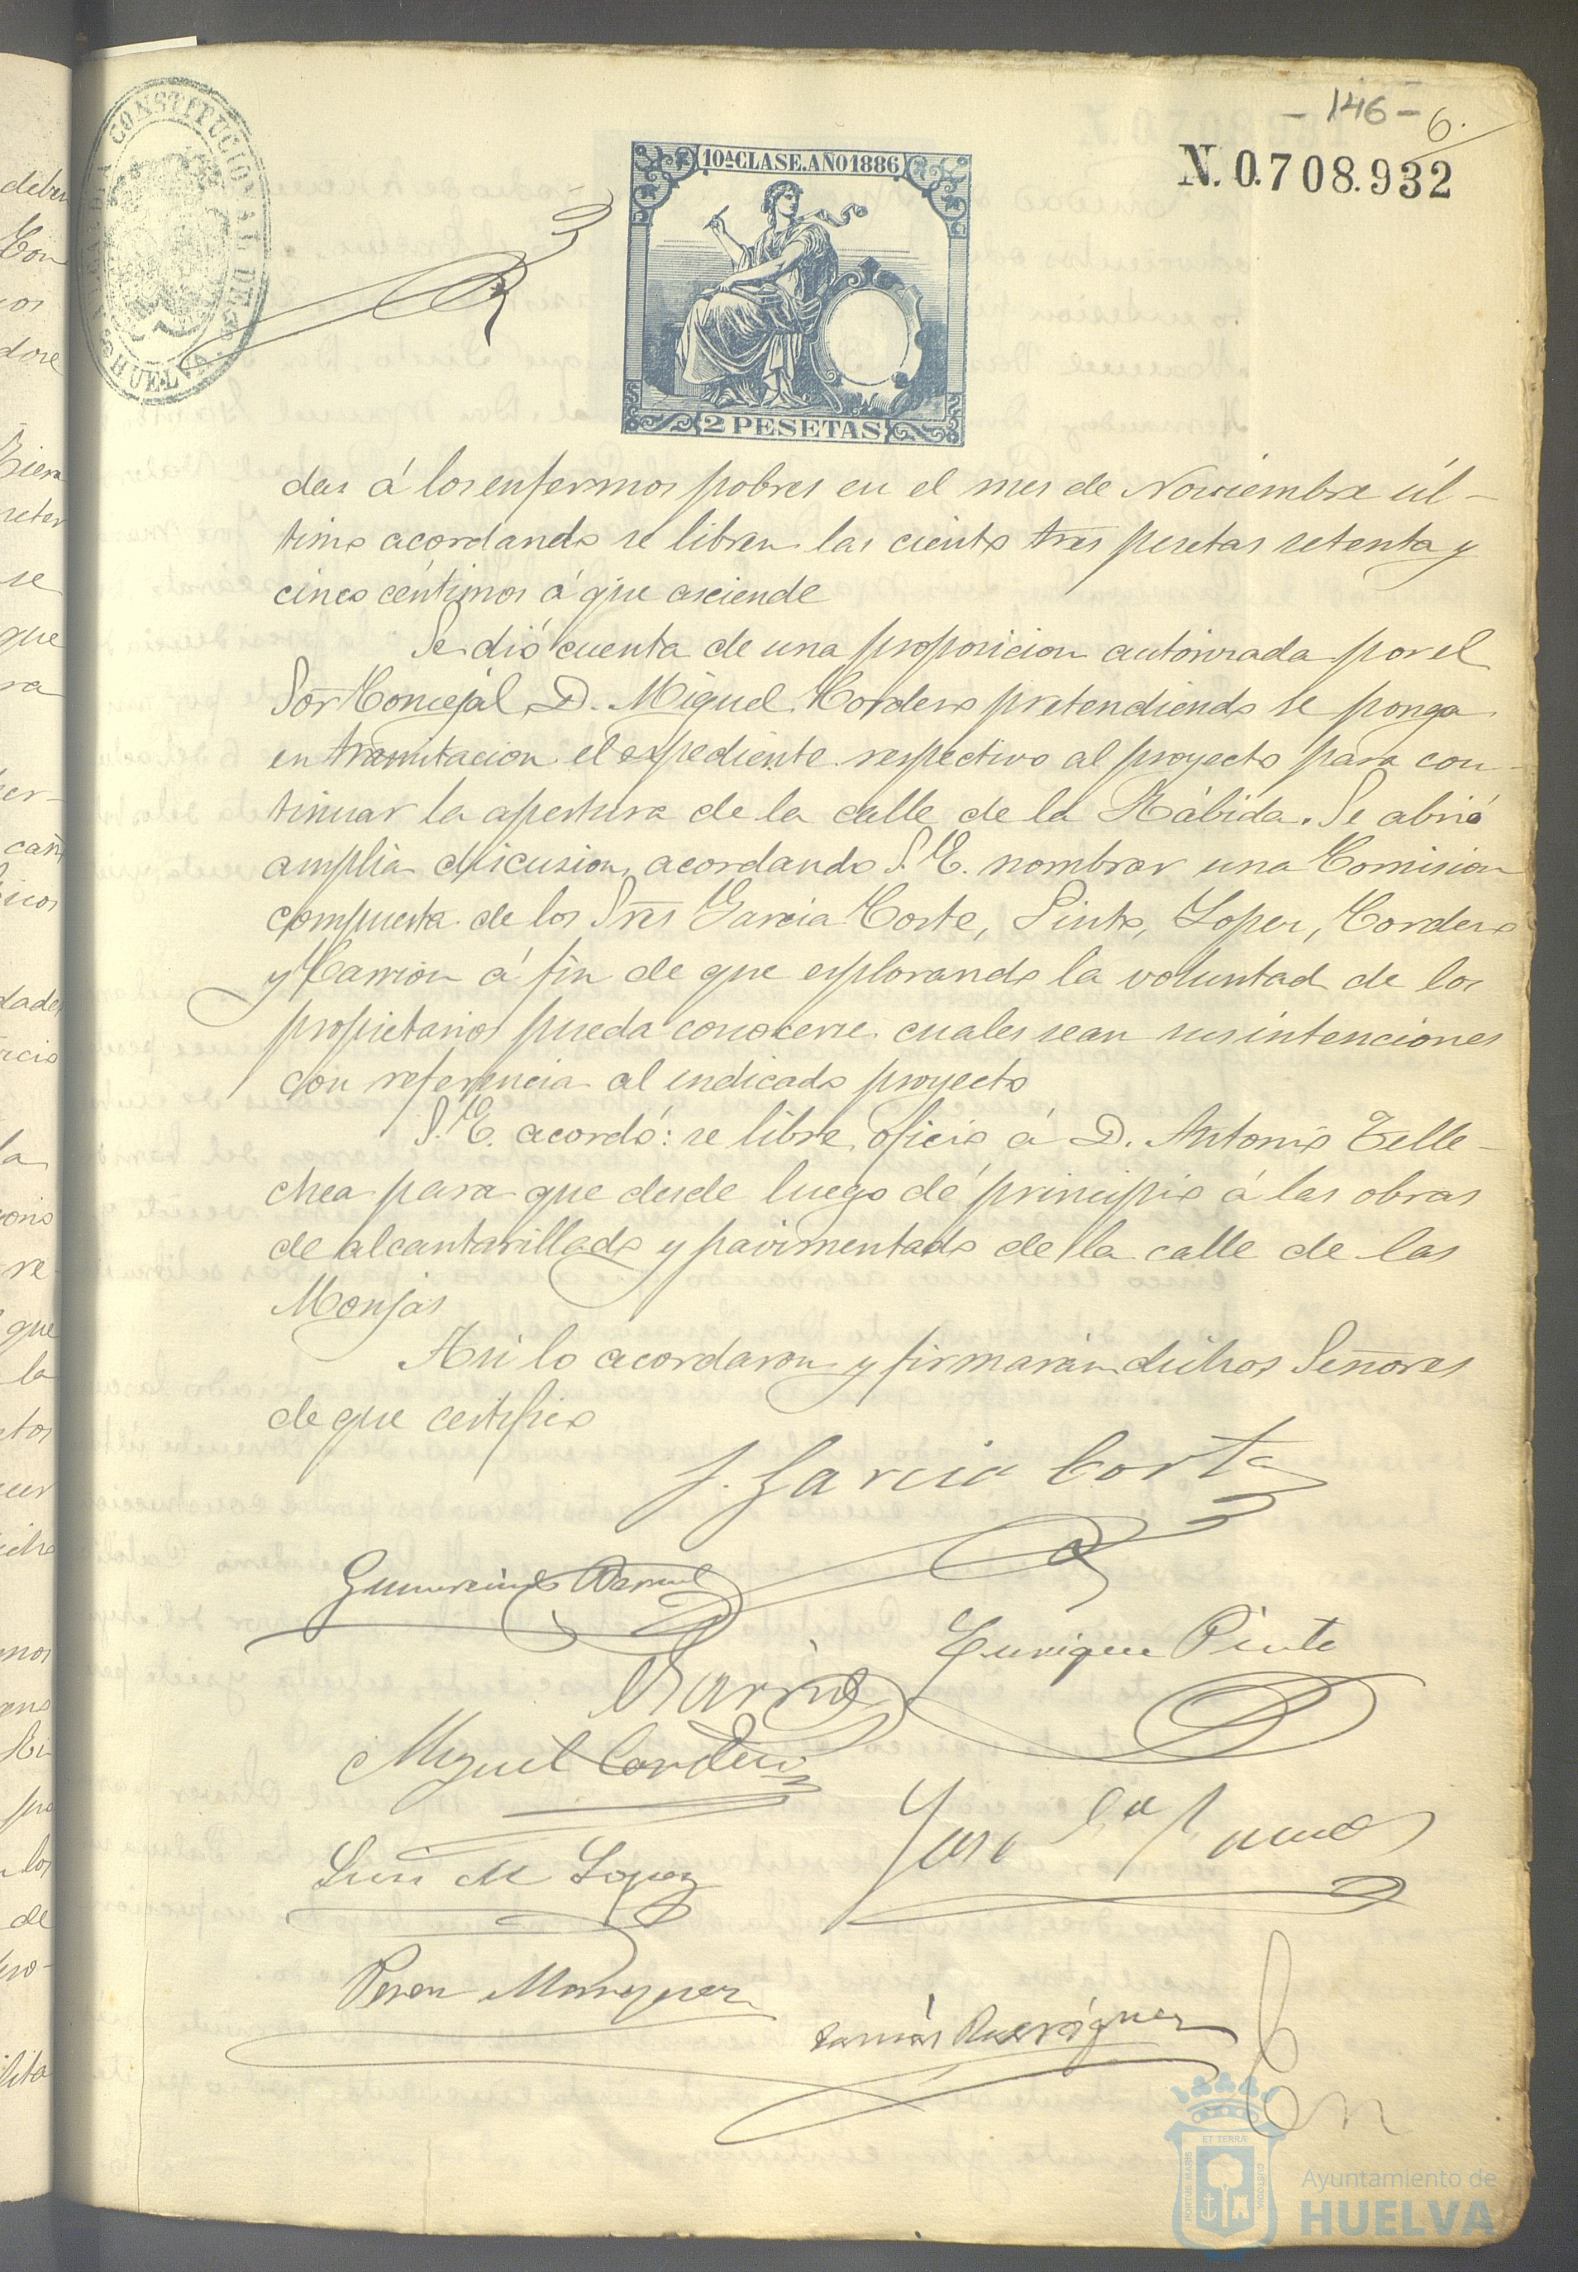 - 146 -
6.
ALCALDIA CONSTITUCIONAL DE HUELVA
10ª CLASE. AÑO 1886
N. 0.708.932
2 PESETAS
das á los enfermos pobres en el mes de Noviembre úl-
timo acordando se libren las ciento tres pesetas setenta y
cinco céntimos á que asciende
Se dió cuenta de una proposicion autorizada por el
Sor Concejal D. Miguel Cordero pretendiendo se ponga
en tramitacion el espediente respectivo al proyecto para con-
tinuar la apertura de la calle de la Rábida. Se abrió
amplia discusion, acordando S.E. nombrar una Comision
compuesta de los Sres Garcia Corte, Pinto, Lopez, Cordero
y Carrion á fin de que esplorando la voluntad de los
propietarios pueda conocerse cuales sean sus intenciones
con referencia al indicado proyecto
S.E. acordó: se libre oficio á D. Antonio Telle-
chea para que desde luego dé principio á las obras
de alcantarillado y pavimentado de la calle de las
Monjas
Asi lo acordaron y firmarán dichos Señores
de que certifico
J. Garcia Corte
Gumersindo
Enrique Pinto
Miguel Cordero
José
Luis M Lopez
Perez Marquez
Tomás Rodríguez
PORTUS MARIS
ET TERRÆ
CUSTODIA
Ayuntamiento de
HUELVA